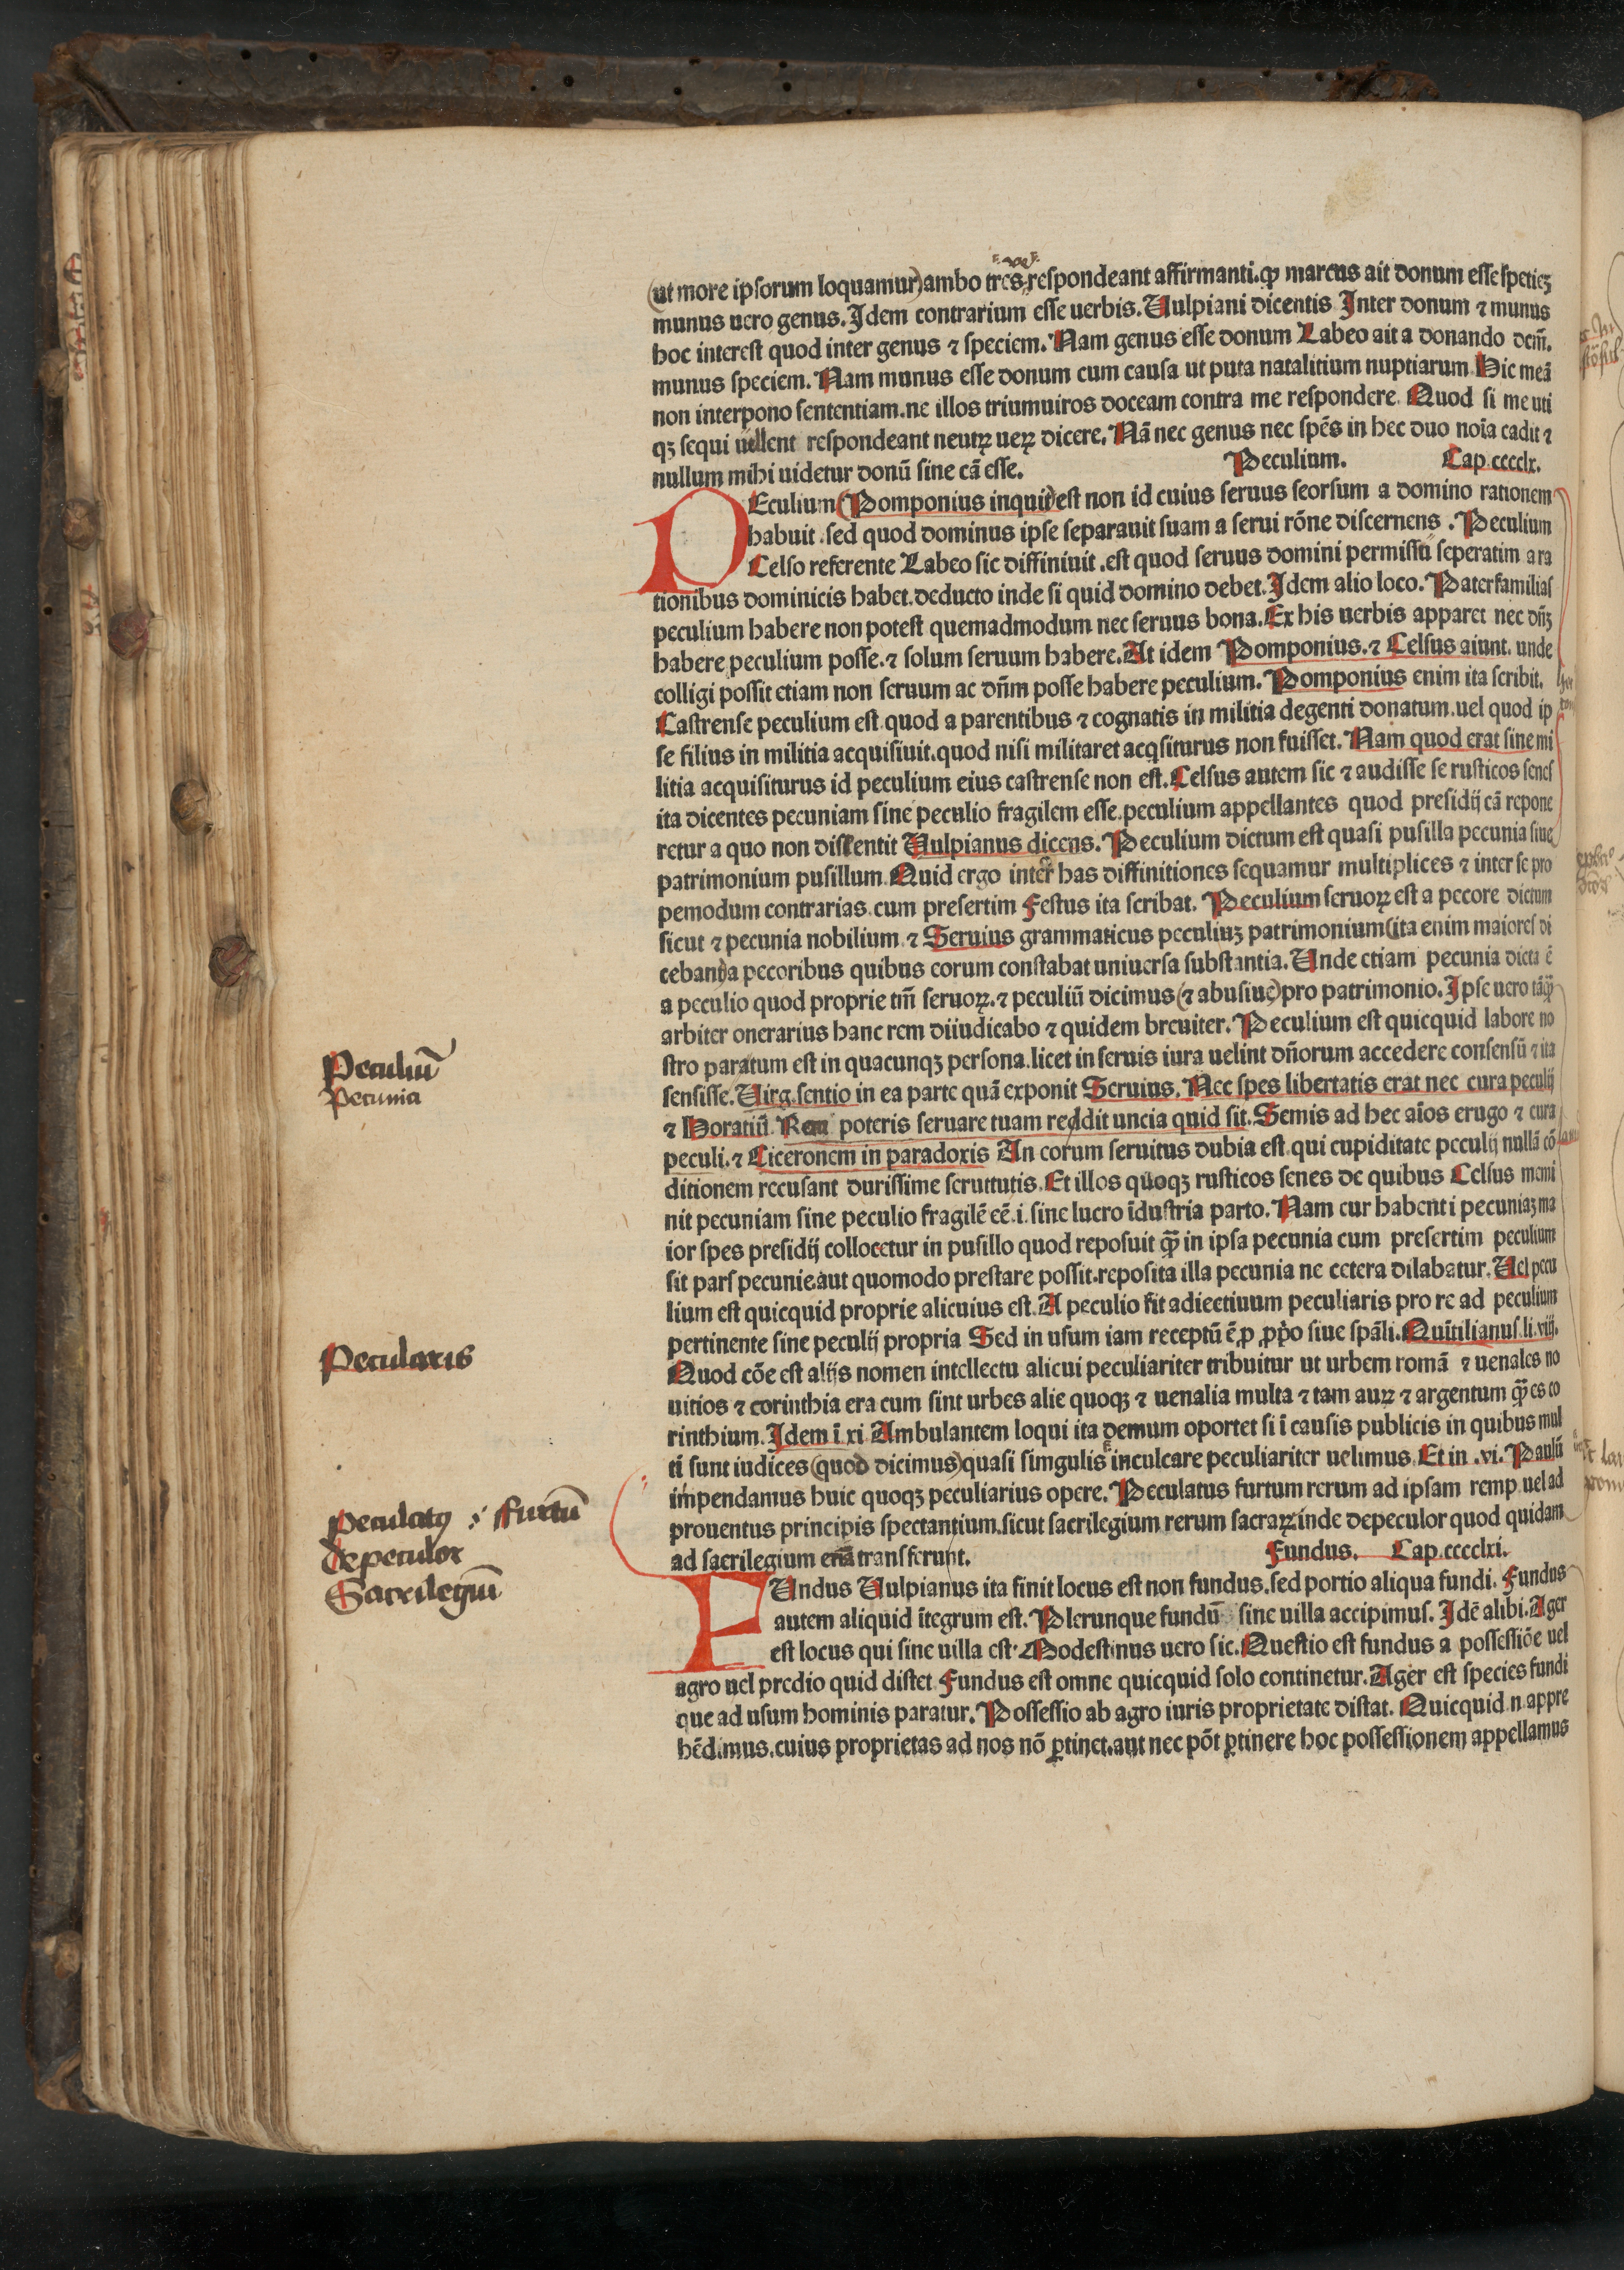 (ut more ipsorum loquamur)ambo tres respondeant affirmanti.qꝫ marcus ait donum esse spetieꝫ
munus uero genus.Idem contrarium esse uerbis.Uulpiani dicentis Inter donum ⁊ munus
hoc interest quod inter genus ⁊ speciem.Nam genus esse donum Labeo ait a donando dcm̄.
munus speciem.Nam munus esse donum cum causa ut puta natalitium nuptiarum Hic meā
non interpono sententiam.ne illos triumuiros doceam contra me respondere Quod si me uti
qꝫ sequi uellent respondeant neutꝝ ueꝝ dicere.Nā nec genus nec spēs in hec duo noīa cadit ⁊
nullum mihi uidetur donū sine cā esse.
Peculium. Cap.cccclx.
PEculium(Pomponius inquit)est non id cuius seruus seorsum a domino rationem
habuit.sed quod dominus ipse separauit suam a serui rōne discernens.Peculium
Celso referente Labeo sic diffiniuit.est quod seruus domini permissu seperatim a ra
tionibus dominicis habet.deducto inde si quid domino debet.Idem alio loco.Paterfamilias
peculium habere non potest quemadmodum nec seruus bona.Ex his uerbis apparet nec dn̄ꝫ
habere peculium posse.⁊ solum seruum habere.At idem Pomponius.⁊ Celsus aiunt.unde
colligi possit etiam non seruum ac dn̄m posse habere peculium.Pomponius enim ita scribit.
Castrense peculium est.quod a parentibus ⁊ cognatis in militia degenti donatum.uel quod ip
se filius in militia acquisiuit.quod nisi militaret acq̄siturus non fuisset.Nam quod erat sine mi
litia acquisiturus id peculium eius castrense non est.Celsus autem sic ⁊ audisse se rusticos senes
ita dicentes pecuniam sine peculio fragilem esse.peculium appellantes quod presidij cā repone
retur a quo non dissentit Uulpianus dicens.Peculium dictum est quasi pusilla pecunia siue
patrimonium pusillum.Quid ergo inter has diffinitiones sequamur multiplices ⁊ inter se pro
pemodum contrarias.cum presertim Festus ita scribat.Peculium seruoꝝ est a pecore dictum
sicut ⁊ pecunia nobilium ⁊ Seruius grammaticus peculiuꝫ patrimonium(ita enim maiores di
cebant)a pecoribus quibus eorum constabat uniuersa substantia.Unde etiam pecunia dicta ē
a peculio quod proprie tm̄ seruoꝝ.⁊ peculiū dicimus(⁊ abusiue)pro patrimonio.Ipse uero tāqꝫ
arbiter onerarius hanc rem diiudicabo ⁊ quidem breuiter.Peculium est quicquid labore no
stro paratum est in quacunqꝫ persona.licet in seruis iura uelint dn̄orum accedere consensū ⁊ ita
sensisse.Uirg.sentio in ea parte quā exponit Seruius.Nec spes libertatis erat nec cura peculij
⁊ Horatiū. poteris seruare tuam reddit uncia quid sit.Semis ad hec aīos erugo ⁊ cura
peculi.⁊ Ciceronem in paradoxis An eorum seruitus dubia est.qui cupiditate peculij nullā cō
ditionem recusant durissime seruitutis.Et illos quoqꝫ rusticos senes de quibus Celsus memi
nit pecuniam sine peculio fragilē eē.i.sine lucro īdustria parto.Nam cur habenti pecuniaꝫ ma
ior spes presidij collocetur in pusillo quod reposuit qꝫ̄ in ipsa pecunia cum presertim peculium
sit pars pecunie.aut quomodo prestare possit.reposita illa pecunia ne cetera dilabatur.Uel pecu
lium est quicquid proprie alicuius est.A peculio fit adiectiuum peculiaris pro re ad peculium
pertinente siue peculij propria Sed in usum iam receptū ē,p ,pp̄o siue spāli.Quītilianus.li.viij.
Quod cōe est alijs nomen intellectu alicui peculiariter tribuitur ut urbem romā ⁊ uenales no
uitios ⁊ corinthia era cum sint urbes alie quoqꝫ ⁊ uenalia multa ⁊ tam auꝝ ⁊ argentum qꝫ̄ es co
rinthium.Idem ī xi Ambulantem loqui ita demum oportet si ī causis publicis in quibus mul
ti sunt iudices(quod dicimus)quasi simgulis inculcare peculiariter uelimus.Et in .vi.Paulū
impendamus huic quoqꝫ peculiarius opere.Peculatus furtum rerum ad ipsam remp.uel ad
prouentus principis spectantium.sicut sacrilegium rerum sacraꝝ.inde depeculor quod quidam
ad sacrilegium etiā transferunt.
Fundus. Cap.cccclxi.
FUndus Uulpianus ita finit locus est non fundus.sed portio aliqua fundi.Fundus
autem aliquid ītegrum est.Plerunque fundū sine uilla accipimus.Idē alibi.Ager
est locus qui sine uilla est.Modestinus uero sic.Questio est fundus a possessiōe uel
agro uel predio quid distet Fundus est omne quicquid solo continetur.Ager est species fundi
que ad usum hominis paratur.Possessio ab agro iuris proprietate distat.Quicquid.n.appre
hēdimus.cuius proprietas ad nos nō ꝑtinet.aut nec pōt ꝑtinere hoc possessionem appellamus
Peculiū
Pecunia
Pecularis
Peculatꝰ : ffurtū
depeculor
Sacrilegiū